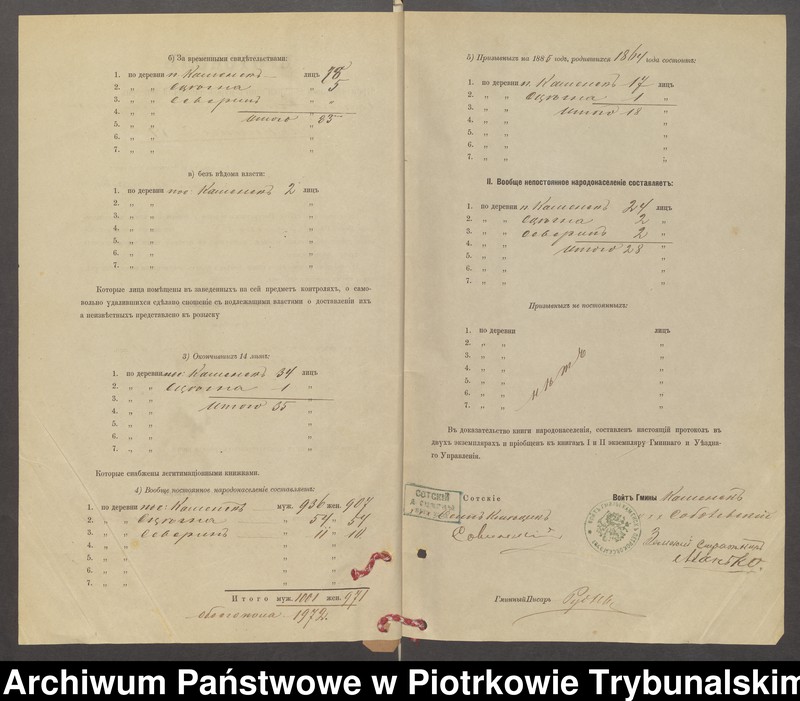 б) За временными свидѣтельствами:
1. по деревни п. Каменскъ лицъ 78
2. „ „ „ 5
3. „ „ „ „
4. „ „ Итого „ 83
5. „ „ „
6. „ „ „
7. „ „ „
в) безъ вѣдома власти:
1. по деревни пос: Каменскъ 2 лицъ
2. „ „ „
3. „ „ „
4. „ „ „
5. „ „ „
6. „ „ „
7. „ „ „
Которые лица помѣщены въ заведенныхъ на сей предметъ контроляхъ, о само-
вольно удалившихся сдѣлано сношеніе съ подлежащими властями о доставленіи ихъ
а неизвѣстныхъ представлено къ розыску
3) Окончившихъ 14 лѣтъ:
1. по деревни пос: Каменскъ 34 лицъ
2. „ „ 1 „
3. „ „ „
4. „ „ Итого 35 „
5. „ „ „
6. „ „ „
7. „ „ „
Которые снабжены легитимаціонными книжками.
4) Вообще постоянное народонаселеніе составляетъ:
1. по деревни пос: Каменскъ муж. 936 жен. 907
2. „ „ „ 54 „ 54
3. „ „ „ 11 „ 10
4. „ „ „ „
5. „ „ „ „
6. „ „ „ „
7. „ „ „ „
Итого муж. 1001 жен. 971
1972.
5) Призывныхъ на 1885 годъ, родившихся 1864 года состоитъ:
1. по деревни п. Каменскъ 17 лицъ
2. „ „ 1 „
3. „ „ Итого 18 „
4. „ „ „
5. „ „ „
6. „ „ „
7. „ „ „
II. Вообще непостоянное народонаселеніе составляетъ:
1. по деревни п. Каменскъ 24 лицъ
2. „ „ 2 „
3. „ „ 2 „
4. „ „ Итого 28 „
5. „ „ „
6. „ „ „
7. „ „ „
Призывныхъ не постоянныхъ:
1. по деревни лицъ
2. „ „ „
3. „ „ „
4. „ „ нѣтъ „
5. „ „ „
6. „ „ „
7. „ „ „
Въ доказательство книги народонаселенія, составленъ настоящій протоколъ въ
двухъ экземплярахъ и пріобщенъ къ книгамъ I и II экземпляру Гминнаго и Уѣздна-
го Управленія.
СОТСКІЙ
Сотскіе
Войтъ Гмины Каменскъ
Земскій Стражникъ
Гминный Писарь
Archiwum Państwowe w Piotrkowie Trybunalskim